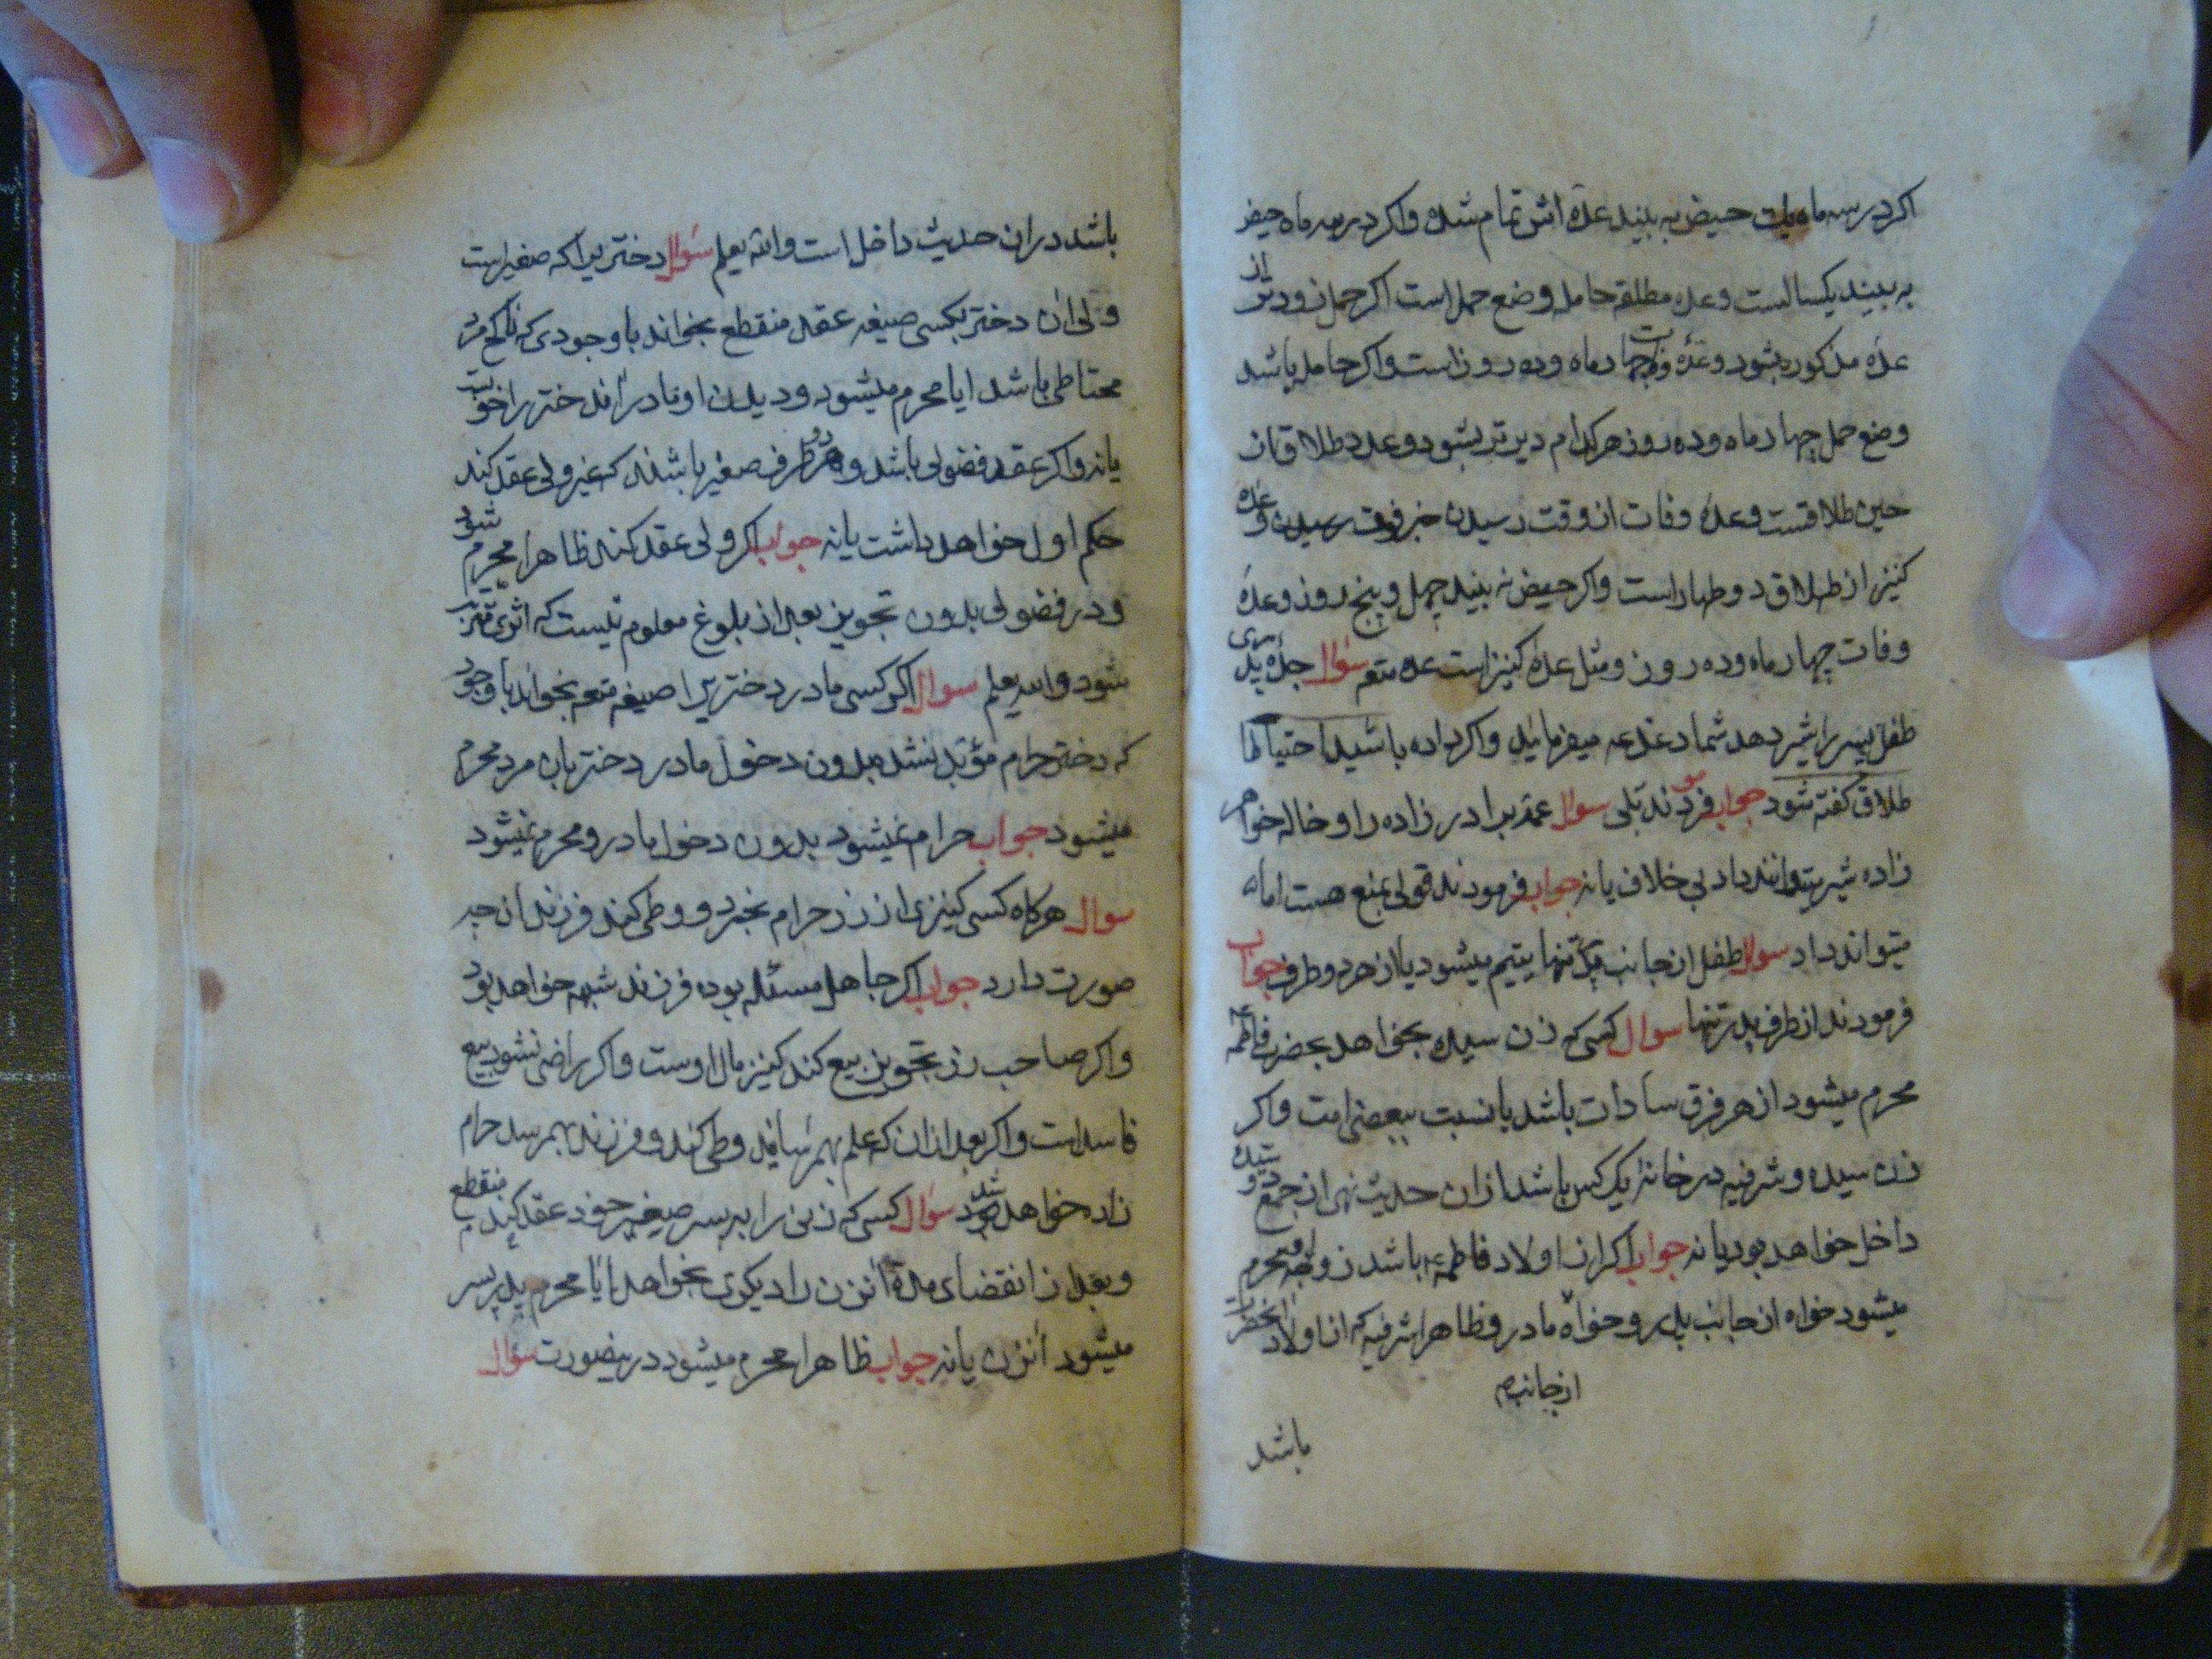 اکر در سه ماه یک حیض به بیند عده اش تمام شده واکر در سه ماه حیض
به بیند یکسالست وعده مطلقه حامله وضع حمل است اکر حمل زودتر از
عده مذکوره بشود وعده وفات چهار ماه وده روز است واکر حامله باشد
وضع حمل چهار ماه وده روز هر کدام دیرتر بشود وعده طلاق از
حین طلاقست وعده وفات از وقت رسیدن خبر وعده
کنیز از طلاق دو طهر است واکر حیض نه بیند چهل وپنج روز وعده
وفات چهار ماه وده روز ومثل عده کنیز است عده متعه سؤال جده پدری
طفل پسر را شیر دهد شما دغدغه میفرمایند واکر داده باشد احتیاطا
طلاق کفته شود جواب فرمودند بلی سؤال عمه برادر زاده را وخاله خواهر
زاده شیر میتوانند داد بی خلاف یا نه جواب فرمودند قولی بمنع هست اما
میتواند داد سؤال طفل از جانب پدر تنها یتیم میشود یا از هر دو طرف جواب
فرمودند از طرف پدر تنها سؤال کسی که زن سیده بخواهد بحضرت فاطمه
محرم میشود از هر فرق سادات باشد یا نسبت ببعضی است واکر
زن سیده وشرفیه در خانه یک کس باشد از ان حدیث نهی از جمع دو سیده
داخل خواهد بود یا نه جواب اکر از اولاد فاطمه باشد زوجه او محرم
میشود خواه از جانب پدر وخواه مادر وظاهرا شرفیه که از اولاد انحضرت
از جانب م
باشد
باشد در ان حدیث داخل است والله یعلم سؤال دختریرا که صغیر است
ولی ان دختر بکسی صیغه عقد منقطع بخواند با وجودی که ناکح مرد
محتاطی باشد ایا محرم میشود ودیدن او مادر ان دختر را خوبست
یا نه واکر عقد فضولی باشد وهر دو طرف صغیر باشند که غیر ولی عقد کند
حکم اول خواهد داشت یا نه جواب اکر ولی عقد کند ظاهرا محرم شود
ودر فضولی بدون تجویز بعد از بلوغ معلوم نیست که اثری مترتب
شود والله یعلم سؤال اکر کسی مادر دختریرا صیغه متعه بخواند با وجود
که دختر حرام مؤبد نشد بدون دخول مادر دختر بان مرد محرم
میشود جواب حرام نمیشود بدون دخول مادر ومحرم نمیشود
سؤال هرکاه کسی کنیزی از زر حرام بخرد ووطی کند فرزند ان چه
صورت دارد جواب اکر جاهل مسئله بوده فرزند شبهه خواهد بود
واکر صاحب زر تجویز بیع کند کنیز مال اوست واکر راضی نشود بیع
فاسد است واکر بعد از ان که علم بهم رسانید وطی کند وفرزند بهمرسد حرام
زاده خواهد شد سؤال کسی که زنی را به پسر صغیر خود عقد کند منقطع
وبعد از انقضای مدة انزن را دیکری بخواهد ایا محرم پدر پسر
میشود انزن یا نه جواب ظاهرا محرم میشود درینصورت سؤال